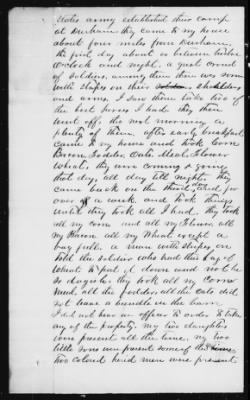 States army established their camp
at Durham they came to my house
about four miles from Durham,
the first day about between twelve
O'clock and night. a great crowd
of soldiers, among them there was some
with stripes on their shoulders
and arms. I saw them take two of
the best horses I had, they then
went off, the next morning a
plenty of them, after early breakfast
came to my house and took Corn
Bacon Fodder Oats Meal Flour
Wheat, they were coming & going
that day, all day till night, they
came back on the third day, and for
over a week, and took things
until they took all I had, they took
all my corn and all my Flour, all
my Bacon all my Wheat except a
bag full. a man with stripes on
told the soldier who had this bag of
Wheat to put it down and not be
so they took all my Corn
Meal, all the fodder, all the Oats did
not leave a bundle in the barn
I did not hear an officer to order to take
any of the property. my two daughters
were present all the time, my two
little sons were present some of the time
Two colored hired men were present